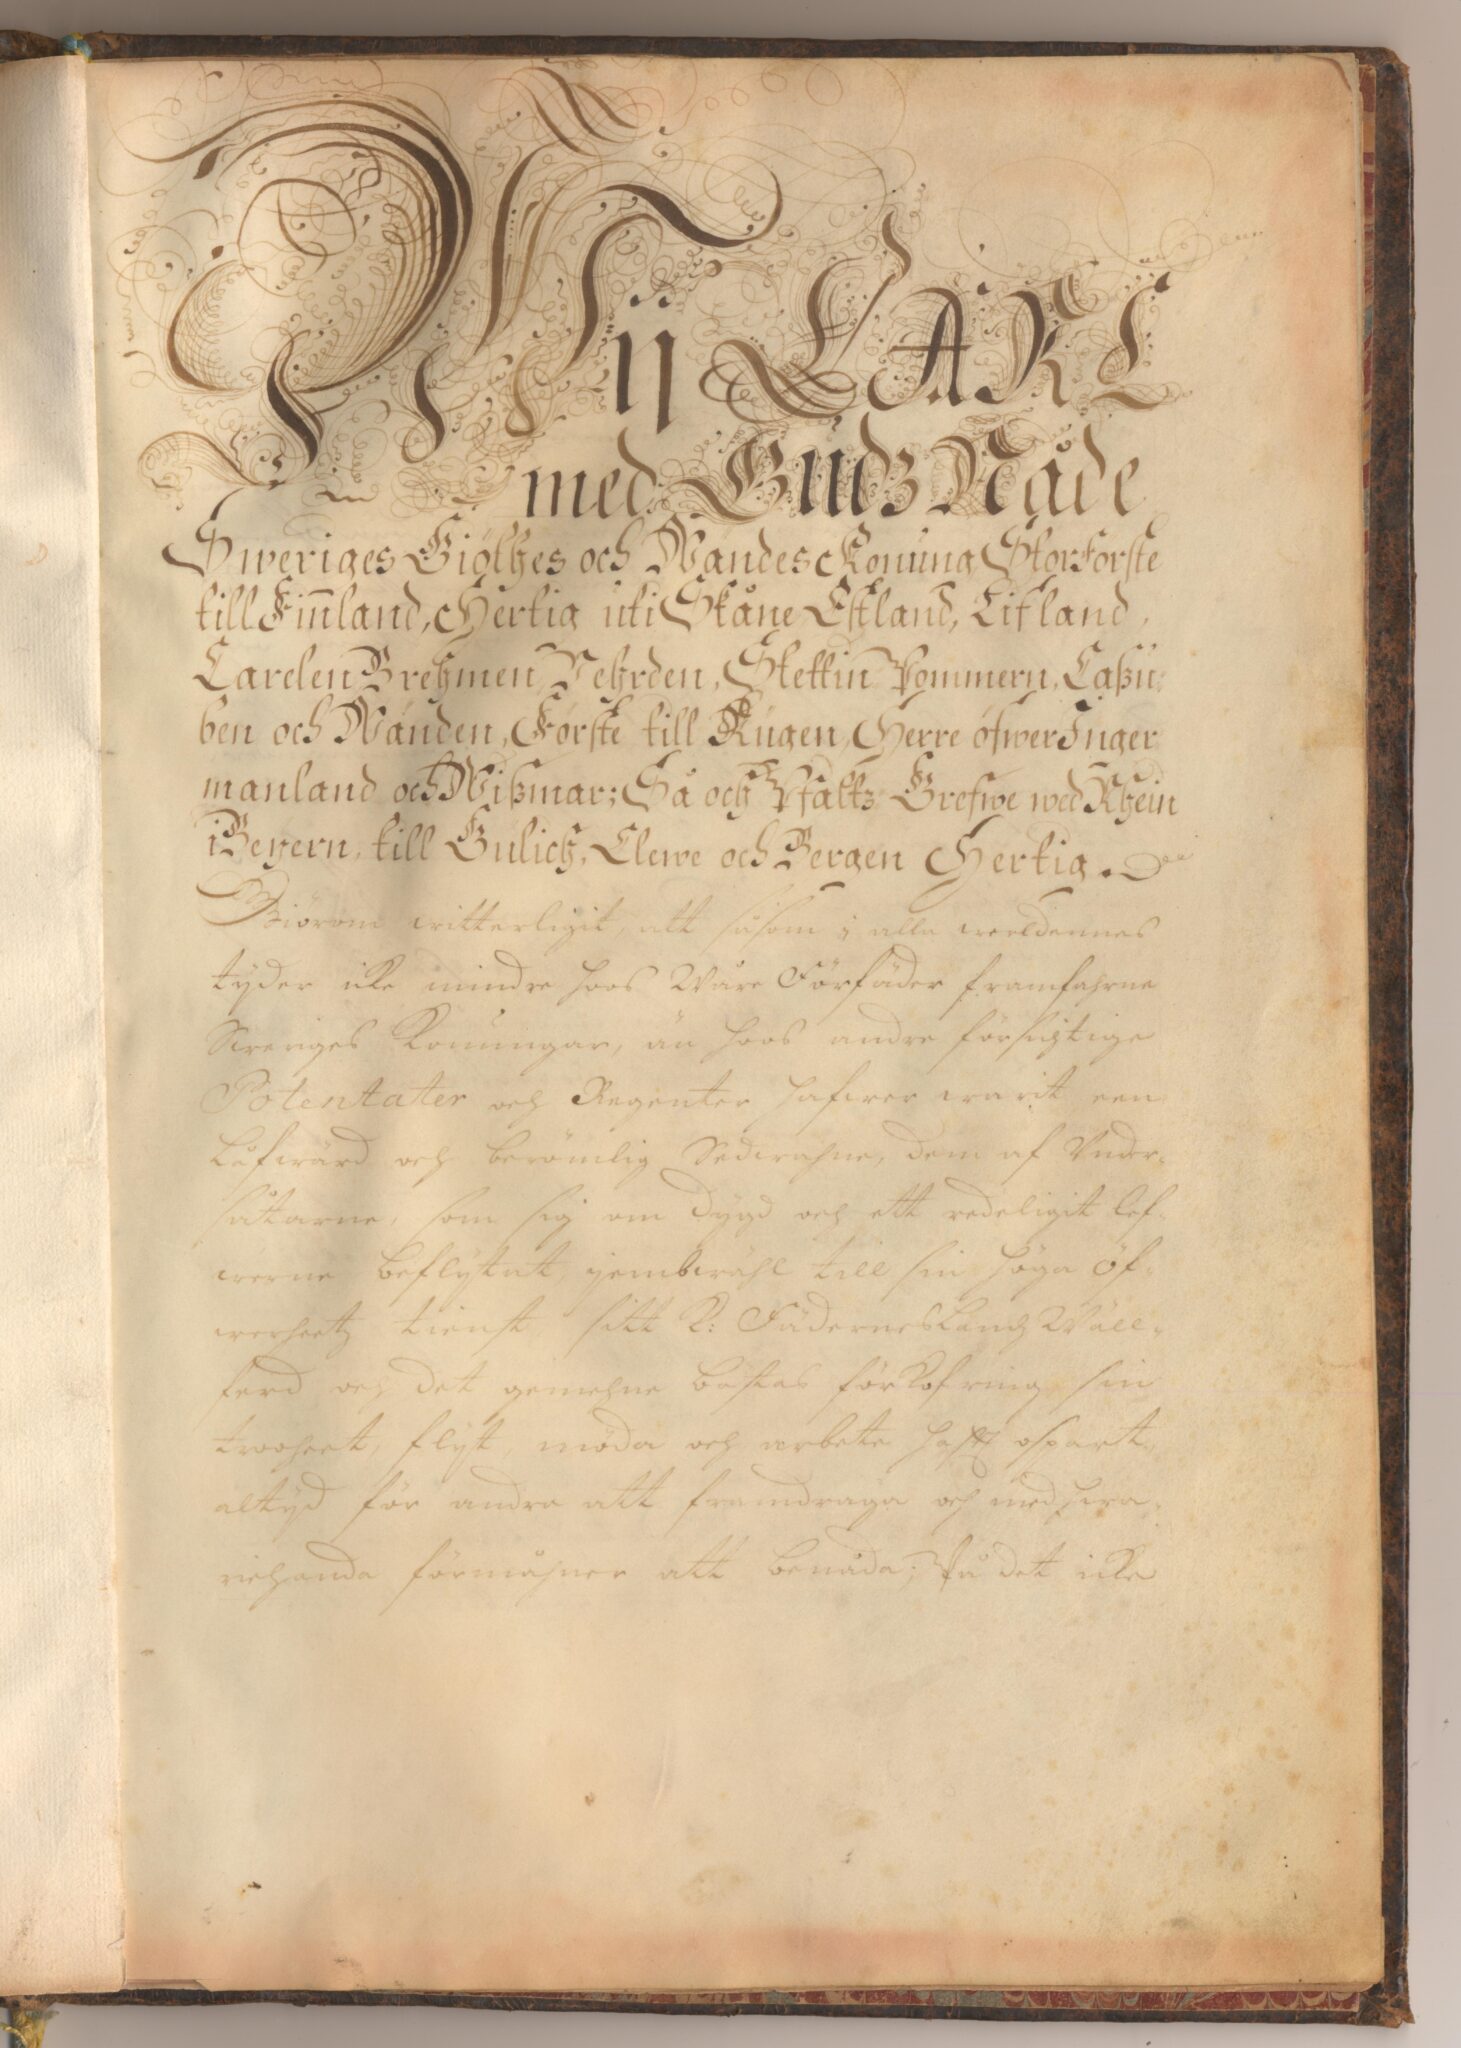 Wij CARL
med Gudz Nåde
Sweriges Giöthes och Wändes Konung StorForste
till Finnland, Hertig uti Skåne Estland, Lifland,
Carelen Brehmen Vehrden, Stettin Pommern, Caßu:
ben och Wänden, Förste till Rügen, Herre öfwer Inger
manland och Wißmar; Så och Pfaltz Grefwe wed Rhein
i Beyern, till Gulich, Clewe och Bergen Hertig.
Giörom witterligit, att såsom i alla werldennes
tyder icke mindre hoos Wåre Förfäder framfahrne
Sweriges Konungar, än hoos andre försichtige
Potentater och Regenter hafwer warit een
Låfwärd och berömlig Sedwahne, dem af Vnder-
såtarne, som sig om dygd och ett redeligit lef-
werne beflytat, jembwähl till sin höga Öf-
werheetz tienst sitt K: Fädernesland Wäll-
ferd och det gemehne bästas förkofring sin
trooheet, flijt, möda och arbete hafft ospart,
altyd för andra att framdraga och med hwa-
riehanda förmåhner att benåda; På det icke